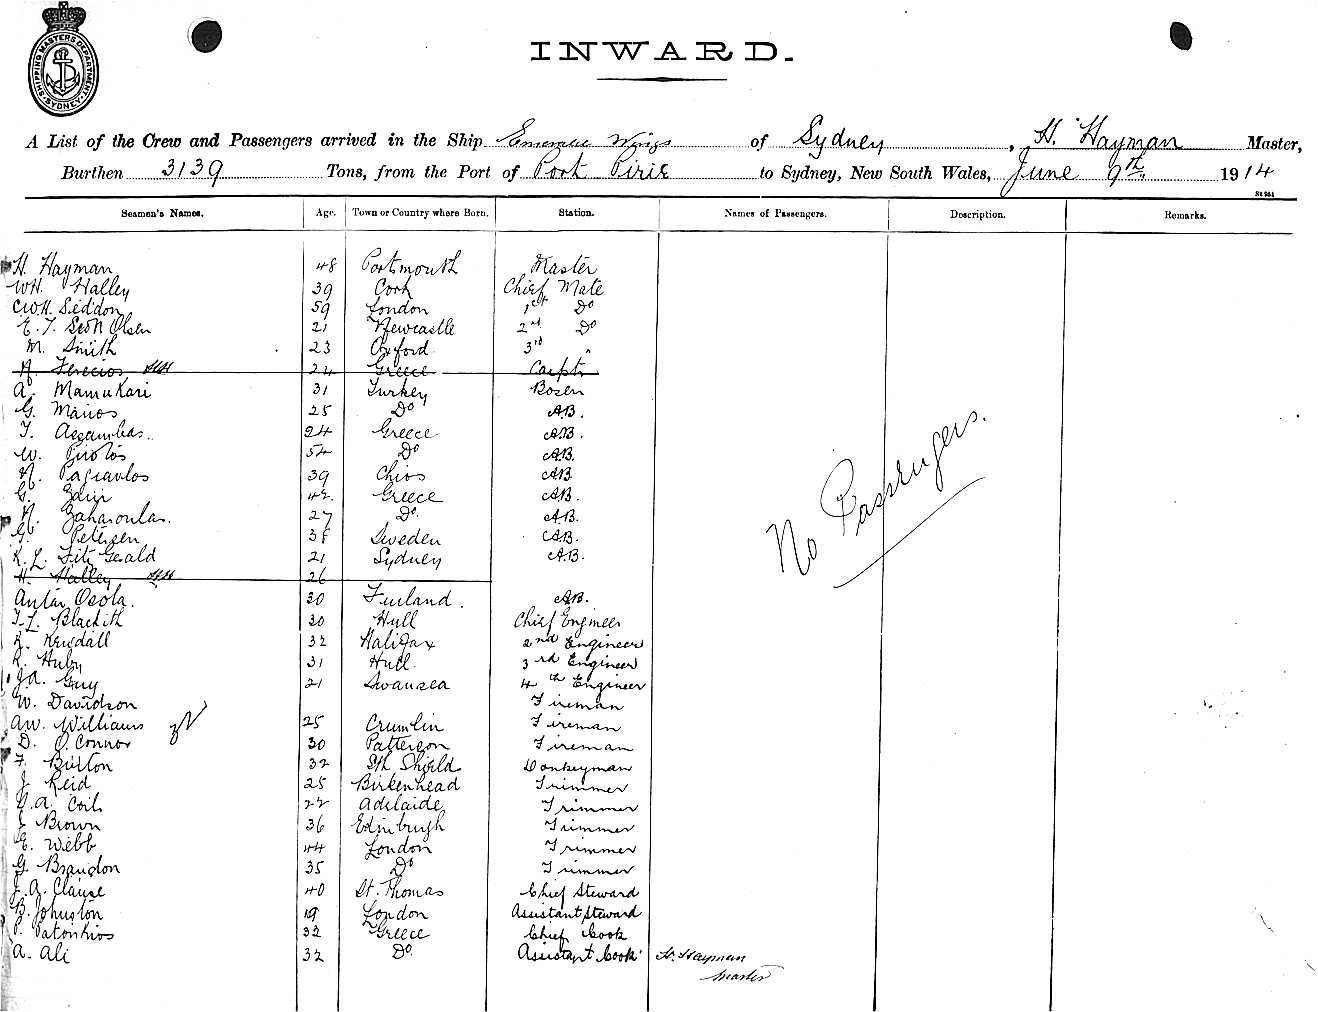 SHIPPING MASTERS DEPARTMENT. SYDNEY
INWARD.
A List of the Crew and Passengers arrived in the Ship Wings of Sydney, H. Hayman Master,
Burthen 3139 Tons, from the Port of Port Pirie to Sydney, New South Wales, June 9th 1914
Seamen's Names. Age. Town or Country where Born. Station. Names of Passengers. Description. Remarks.
H. Hayman 48 Portsmouth Master
WH. Halley 39 Cork Chief Mate
CWH. Seddon 59 London 1st Do
E. T. Olsen 21 Newcastle 2nd Do
M. Smith 23 Oxford 3rd "
24 Greece Carptr
A. Mamukari 31 Turkey Bosen
G. Manos 25 Do AB.
T. 24 Greece AB.
W. 54 Do AB.
N. 39 Chios AB
G. 42 Greece AB.
N. Zaharoulas. 27 Do. A.B.
G. Petersen 38 Sweden A.B.
K. L. Fitz Gerald 21 Sydney A.B.
H. Halley 26
Antar Osola. 30 Finland. AB.
T. L. Blackith 30 Hull Chief Engineer
R. Kendall 32 Halifax 2nd Engineer
R. Huby 31 Hull. 3rd Engineer
J.A. Guy 21 Swansea 4th Engineer
W. Davidson Fireman
AW. Williams 25 Crumlin Fireman
D. O.Connor 30 Patterson Fireman
F. Burton 32 Sth Shield Donkeyman
J. Reid 25 Birkenhead Trimmer
A. Coil 22 Adelaide Trimmer
J. Brown 36 Edinburgh Trimmer
E. Webb 44 London Trimmer
G. Brandon 35 Do Trimmer
J. A. Clause 40 St. Thomas Chief Steward
B. Johnston 19 London Assistant Steward
P. Patonkios 32 Greece Chief Cook
A. Ali 32 Do. Assistant Cook H. Hayman
Master
No Passengers.